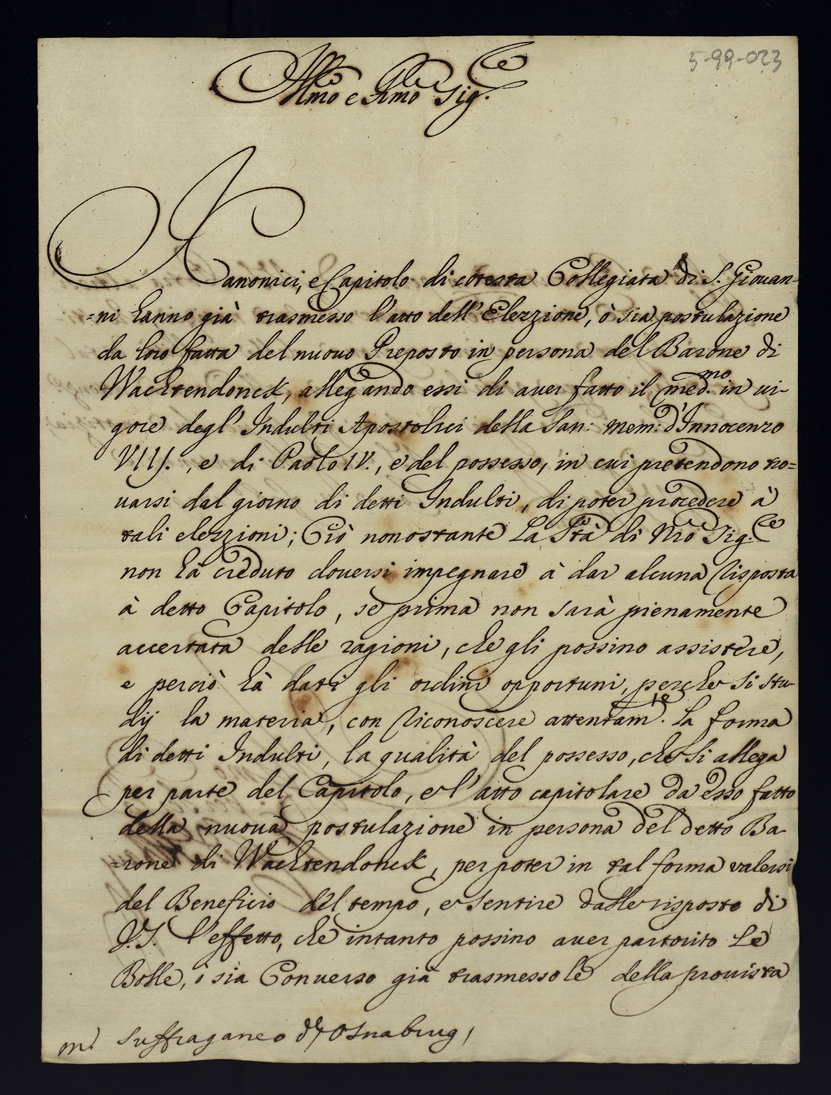 5-99-023
Illmo e Rmo Sig.re
I Canonici, e Capitolo di cotesta Collegiata di S. Giovan-
=ni hanno già trasmesso l'atto dell'Elezzione, ò sia postulazione
da loro fatta del nuovo Preposto in persona del Barone di
Wachtendonck, allegando essi di aver fatto il med.mo in vi-
gore degl'Indulti Apostolici della San: mem: d'Innocenzo
VIIJ., e di Paolo IV., e del possesso, in cui pretendono tro=
varsi dal giorno di detti Indulti, di poter procedere à
tali elezzioni; Ciò nonostante La Stà di Nro Sig.re
non hà creduto doversi impegnare à dar alcuna risposta
à detto Capitolo, se prima non sarà pienamente
accertata delle ragioni, che gli possino assistere,
e perciò hà dati gli ordini opportuni, perche si stu-
dij la materia, con riconoscere attentam.te la forma
di detti Indulti, la qualità del possesso, che si allega
per parte del Capitolo, e l'atto capitolare da esso fatto
della nuova postulazione in persona del detto Ba-
=rone di Wachtendonck, per poter in tal forma valersi
del Beneficio del tempo, e sentire dalle risposte di
V.S. l'effetto, che intanto possino aver partorito Le
Bolle, ò sia Converso già trasmessole della provista
m.r Suffraganeo d'Osnabrug